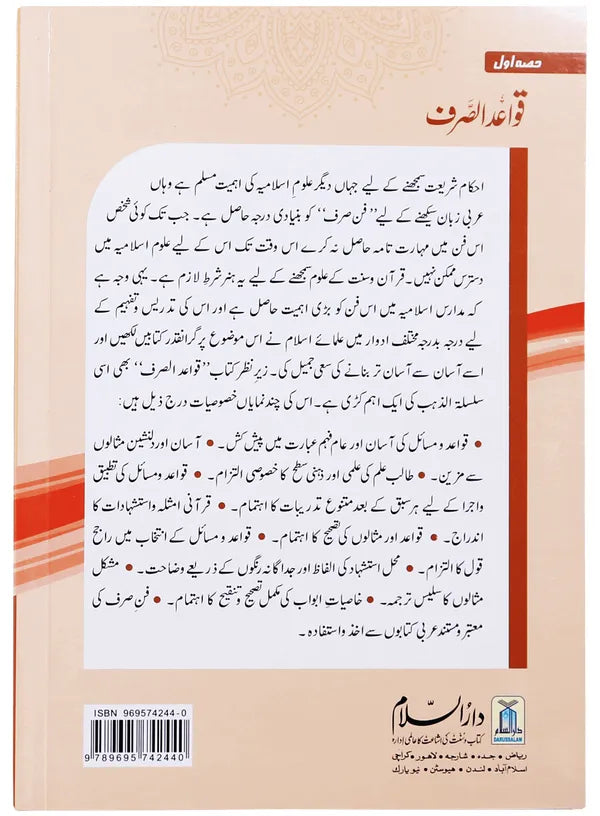 حصہ اول
قواعد الصرف
احکام شریعت سمجھنے کے لیے جہاں دیگر علوم اسلامیہ کی اہمیت مسلم ہے وہاں
عربی زبان سیکھنے کے لیے ’’فن صرف‘‘ کو بنیادی درجہ حاصل ہے۔ جب تک کوئی شخص
اس فن میں مہارت تامہ حاصل نہ کرے اس وقت تک اس کے لیے علوم اسلامیہ میں
دسترس ممکن نہیں۔ قرآن و سنت کے علوم سمجھنے کے لیے یہ ہنر شرط لازم ہے۔ یہی وجہ ہے
کہ مدارس اسلامیہ میں اس فن کو بڑی اہمیت حاصل ہے اور اس کی تدریس و تفہیم کے
لیے درجہ بدرجہ مختلف ادوار میں علمائے اسلام نے اس موضوع پر گرانقدر کتابیں لکھیں اور
اسے آسان سے آسان تر بنانے کی سعی جمیل کی۔ زیر نظر کتاب ’’قواعد الصرف‘‘ بھی اسی
سلسلۃ الذہب کی ایک اہم کڑی ہے۔ اس کی چند نمایاں خصوصیات درج ذیل ہیں:
• قواعد و مسائل کی آسان اور عام فہم عبارت میں پیش کش۔ • آسان اور دلنشین مثالوں
سے مزین۔ • طالب علم کی علمی اور ذہنی سطح کا خصوصی التزام۔ • قواعد و مسائل کی تطبیق
و اجرا کے لیے ہر سبق کے بعد متنوع تدریبات کا اہتمام۔ • قرآنی امثلہ و استشہادات کا
اندراج۔ • قواعد اور مثالوں کی تصحیح کا اہتمام۔ • قواعد و مسائل کے انتخاب میں راجح
قول کا التزام۔ • محل استشہاد کی الفاظ اور جداگانہ رنگوں کے ذریعے وضاحت۔ • مشکل
مثالوں کا سلیس ترجمہ۔ • خاصیات ابواب کی مکمل تصحیح و تنقیح کا اہتمام۔ • فن صرف کی
معتبر و مستند عربی کتابوں سے اخذ و استفادہ۔
ISBN 969574244-0
9 789695 742440
دارالسلام
کتاب و سنت کی اشاعت کا عالمی ادارہ
ریاض • جدہ • شارجہ • لاہور • کراچی
اسلام آباد • لندن • ہیوسٹن • نیو یارک
دارالسلام
DARUSSALAM